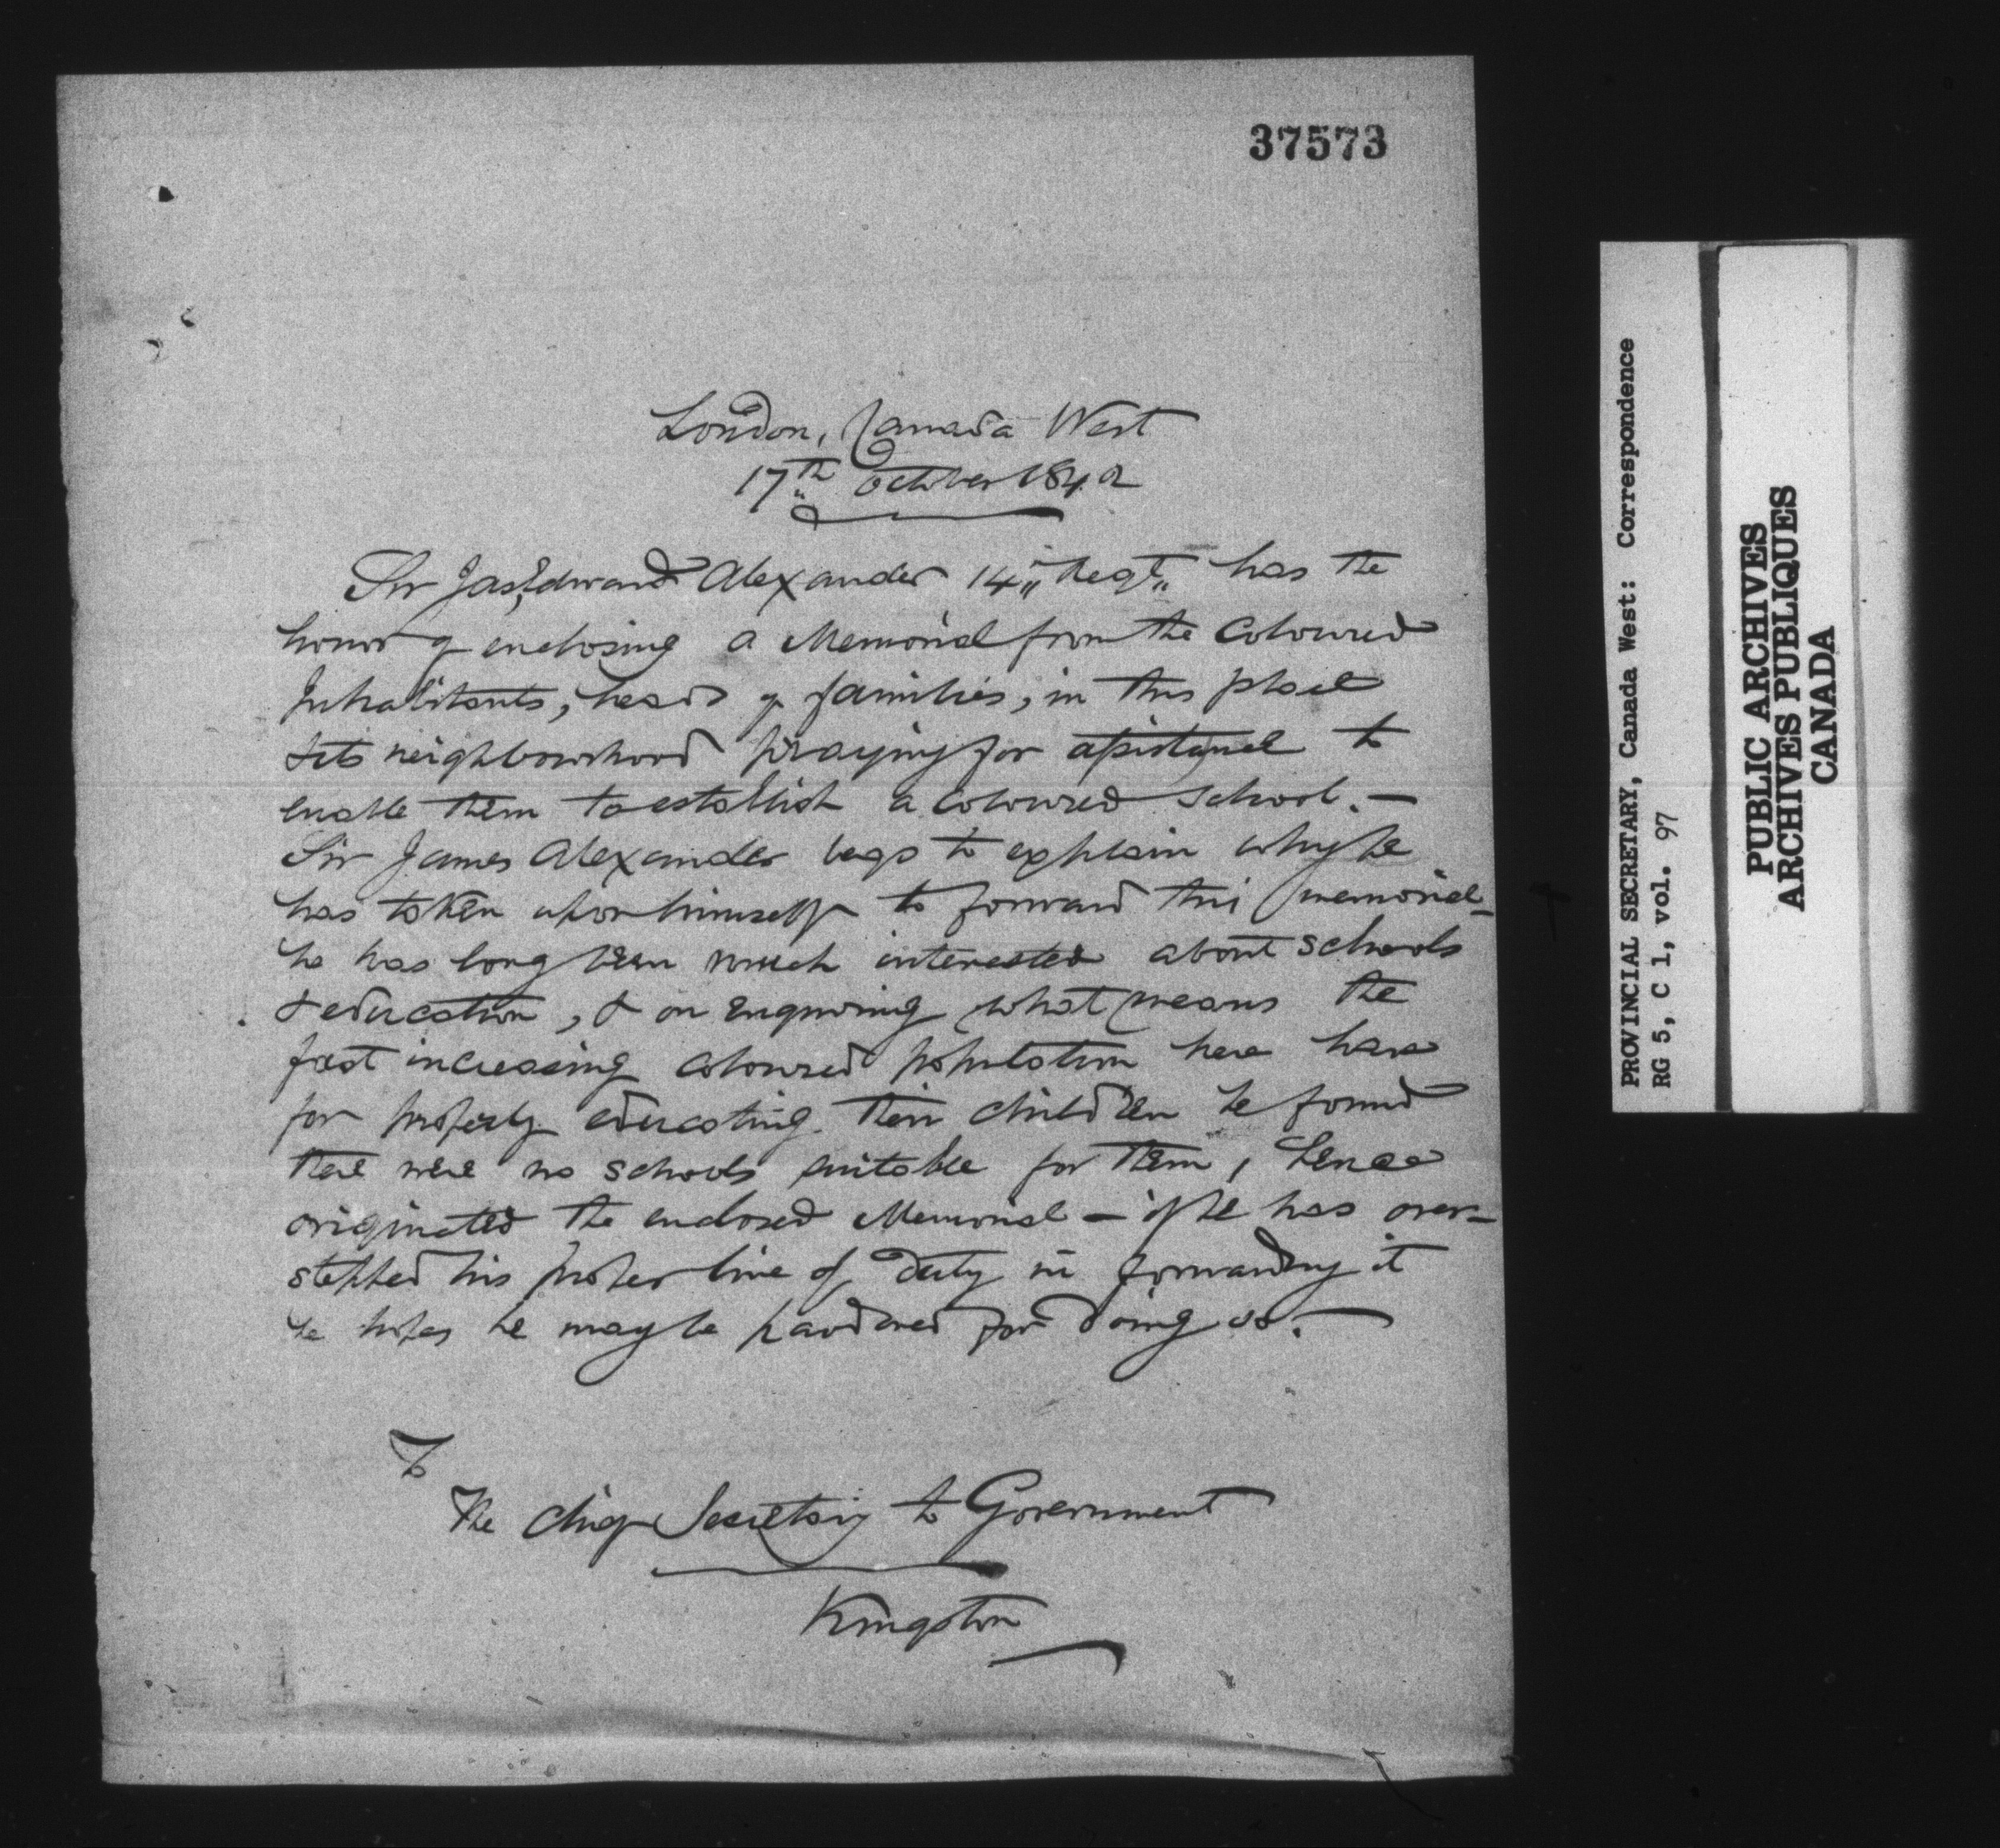 37573
London, Canada West
17th October 1842
Sir Jas. Edward Alexander 14" Regt" has the
honor of enclosing a Memorial from the Coloured
Inhabitants, heads of families, in this place
& its neighbourhood praying for assistance to
enable them to establish a coloured school. —
Sir James Alexander begs to explain why he
has taken upon himself to forward this memorial –
he has long been much interested about schools
& education, & on enquiring what means the
fast increasing coloured population here have
for properly educating their children he found
there were no schools suitable for them, hence
originated the enclosed Memorial – if he has over-
stepped his proper line of duty in forwarding it
he hopes he may be pardoned for doing so. —
To
The Chief Secretary to Government
Kingston
PROVINCIAL SECRETARY, Canada West: Correspondence
RG 5, C 1, vol. 97
PUBLIC ARCHIVES
ARCHIVES PUBLIQUES
CANADA